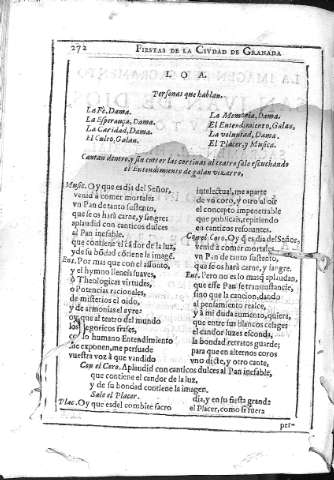 272 FIESTAS DE LA CIVDAD DE GRANADA
LOA.
Personas que hablan.
La Fè, Dama.
La Esperança, Dama.
La Caridad, Dama.
El Culto, Galan.
La Memoria, Dama.
El Entendimiento, Galan.
La voluntad, Dama.
El Placer, y Musica.
Cantan dentro, y sin correr las cortinas al teatro sale escuchando
el Entendimiento de galan vizarro,
Music. Oy que es dia del Señor,
venid à comer mortales
vn Pan de tanto sustento,
que se os harà carne, y sangre
aplaudid con canticos dulces
al Pan inefable.
que contiene el cãdor de la luz,
y de su bõdad cõtiene la imagẽ.
Ent. Por mas que con el assunto,
y el hymno lleneis suaves,
ò Theologicas virtudes,
o Potencias racionales,
de misterios el oido,
y de armonias el ayre
que al teatro del mundo
alegoricos frases,
humano Entendimiento
exponen, me persuade
vuestra voz à que vn dido
intelectual, me aparte
de vn coro, y otro
el concepto imponetrable
que publicais, repitiendo
en canticos resonantes.
Coro. Oy q̃ es dia del Señor,
venid à comer mortales
vn Pan de tanto sustento,
que se os harà carne, y sangre.
Ent. Pero no es lo mas q̃ aplaudan,
que esse Pan se transustancie,
sino que la cancion, dando
al pensamiento realce,
y à mi duda aumento, quiera,
que entre sus blancos celages
el candor luzes esconda,
la bondad retratos guarde;
para que en alternos coros
vno dicte, y otro cante,
Con el Coro. Aplaudid con canticos dulces al Pan inefable,
que contiene el candor de la luz,
y de su bondad contiene la imagen.
Sale el Placer.
Plac. Oy que es del combite sacro
dia, y en su fiesta grande
el Placer, como si fuera
per-